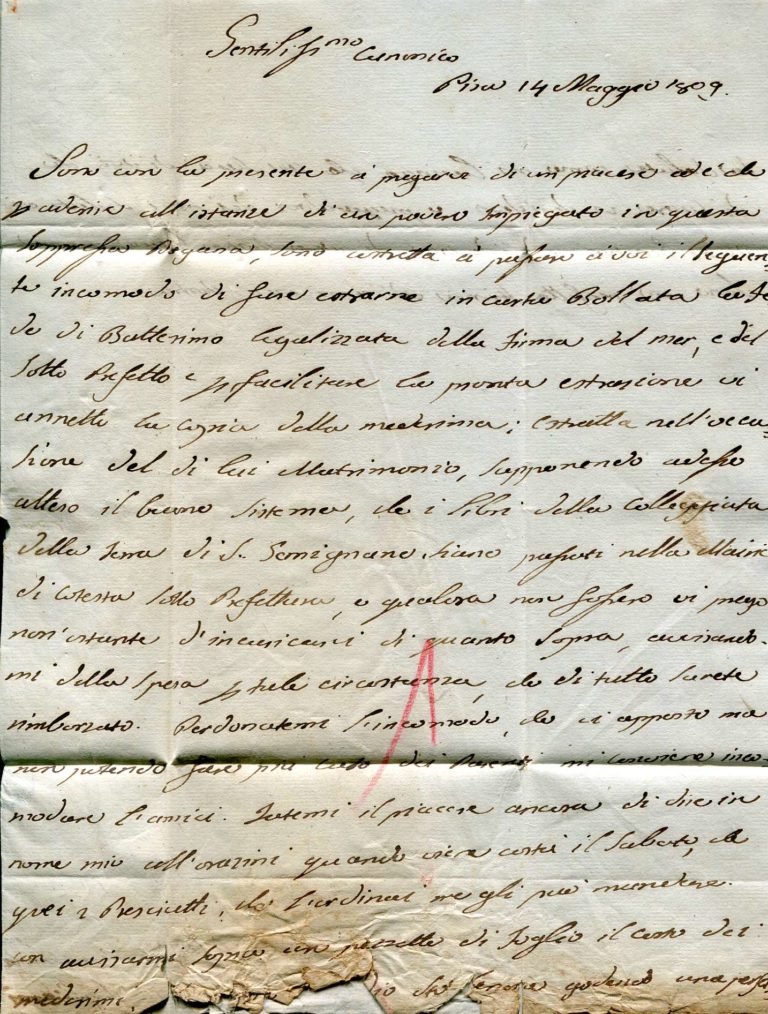 Gentilissmo Canonico
Pisa 14 Maggio 1809.
Sono con la presente a pregarvi di un piacere ed è che
p aderire all'istanze di un povero Impiegato in questa
soppressa Dogana, sono costretta a passare a voi il seguen=
te incomodo di fare estrarre in carta Bollata la Fe
de di Battesimo legalizzata della Firma del mer, e del
Sotto Prefetto e p facilitare la pronta estrazione vi
annetto la copia della medesima; estratta nell'occa=
sione del di lui Matrimonio, supponendo adesso
atteso il buono sistema, che i Libri della Collegiata
della Terra di S. Gemignano siano passati nella Mairie
di cotesta Sotto Prefettura, e qualora non fossero vi prego
non'ostante d'incaricarvi di quanto sopra, avvisando-
mi della spesa p tale circostanza, che di tutto sarete
rimborzato. Perdonatemi l'incomodo, che vi apporto ma
non potendo fare più caso dei Parenti mi conviene inco-
modare l'amici. Fatemi il piacere ancora di dire in
nome mio all'orazini quando viene costì il Sabato, che
quei 2 Presciutti, che l'ordinai me gli può mandare
con avvisarmi sopra un pezzetto di Foglio il costo dei
medesimi. godendo una